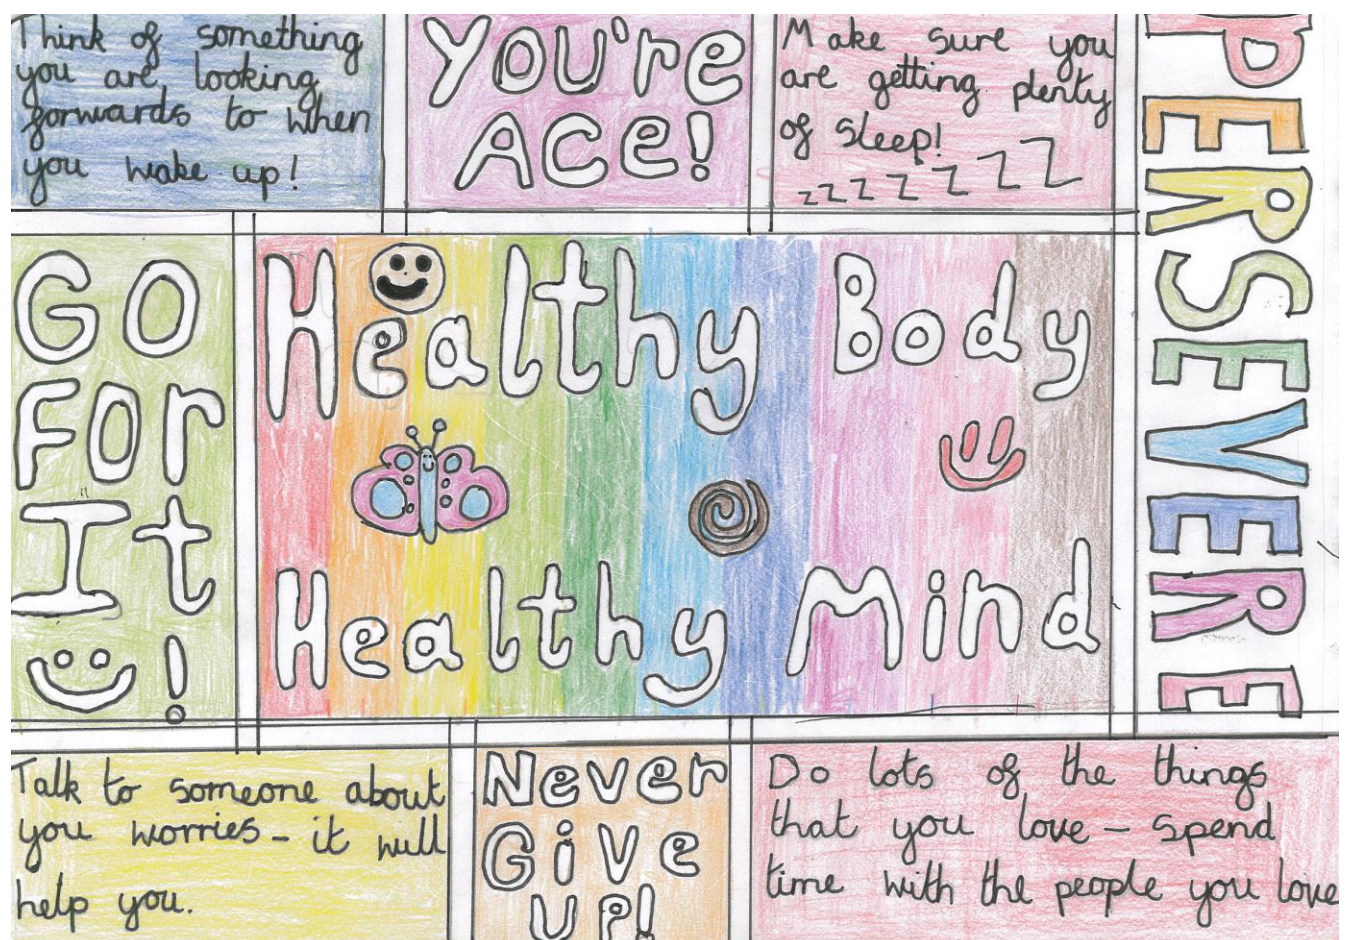 Think of something
you are looking
forwards to when
you wake up!
You're
Ace!
Make sure you
are getting plenty
of sleep!
zzzzzzz
PERSEVERE
Go
For
It
!
Healthy Body
Healthy Mind
Talk to someone about
you worries – it will
help you.
Never
Give
Up!
Do lots of the things
that you love – spend
time with the people you love